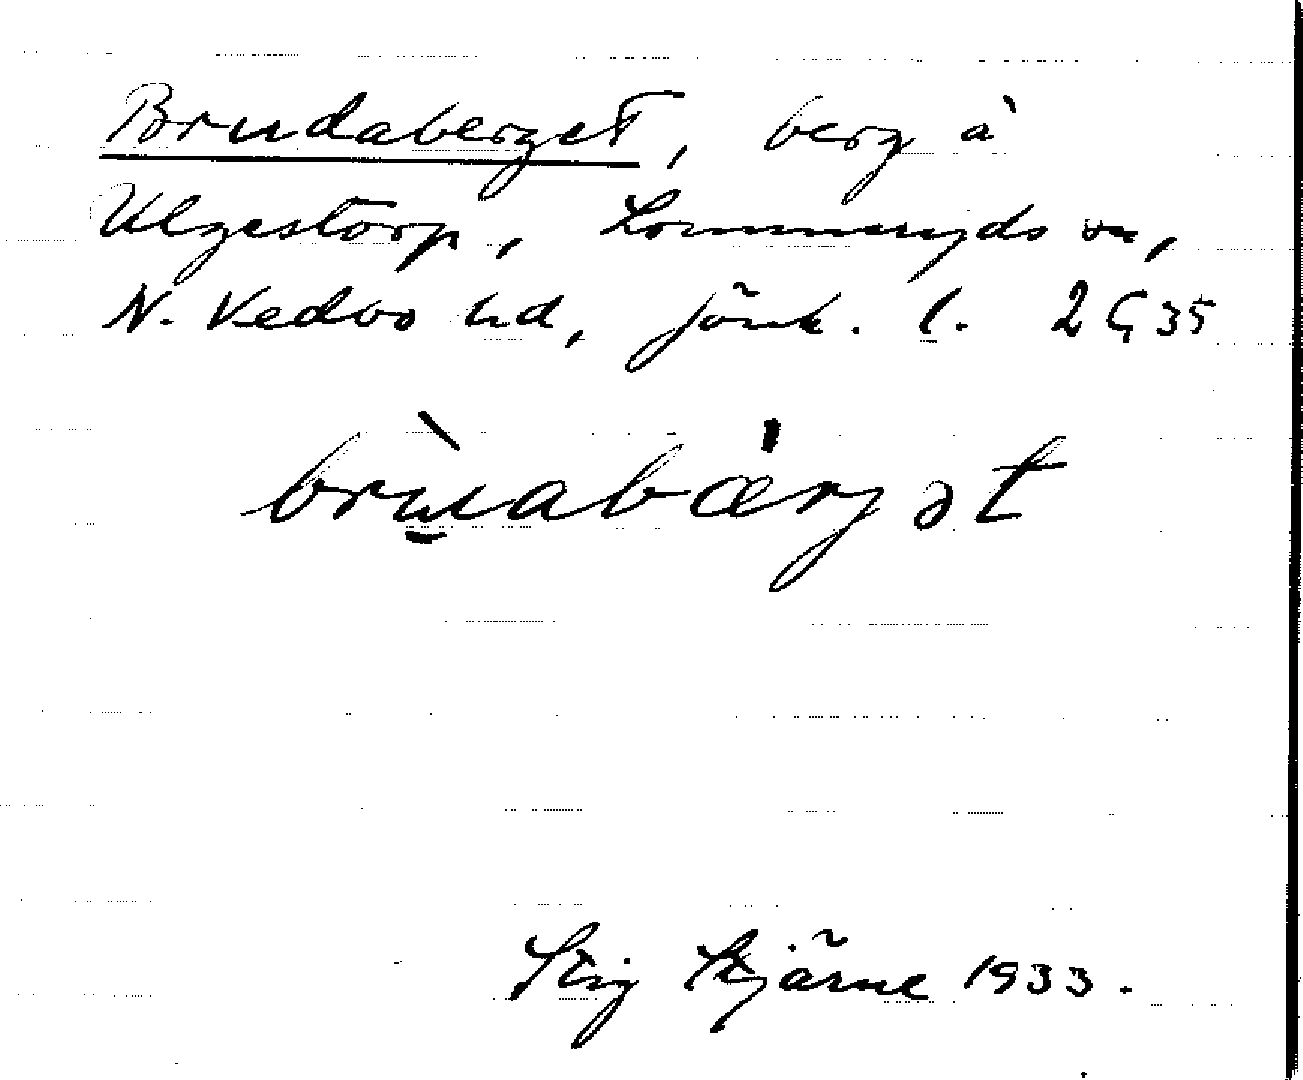 Brudaberget, berg å
Ulgestorp, Lommeryds sn,
N. Vedbo hd, Jönk. l. 2G35
brùabær̍gət
Stig Stjärne 1933.